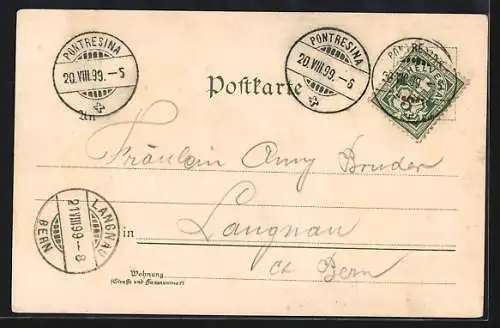 PONTRESINA
20.VIII.99.–S
PONTRESINA
20.VIII.99.–S
PONTRESINA
Postkarte
An
Fräulein Anny Bruder
LANGNAU
21.VIII.99–8
BERN
in
Langnau
Ct. Bern
Wohnung
(Straße und Hausnummer)